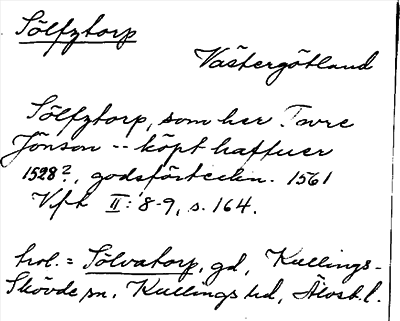 Sölfztorp
Västergötland
Sölfztorp, som her Tvre
Jönson -- köpt haffuer
1528?, godsförteckn. 1561
Vfk II: 8-9, s. 164.
trol. = Sölvatorp, gd, Kullings-
Skövde sn, Kullings hd, Älvsb. l.